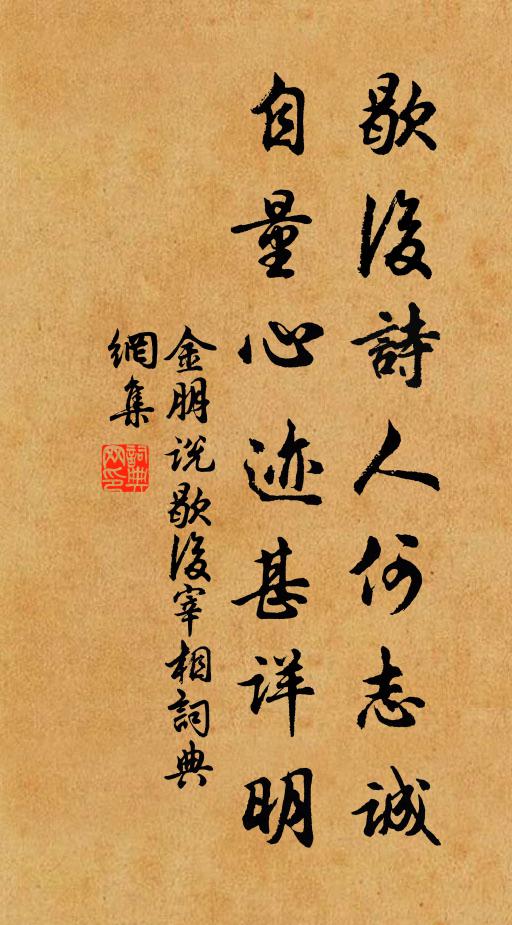 歇後詩人何志誠
自量心迹甚詳明
金朋说歇後宰相詞典
網集
詞典
网印